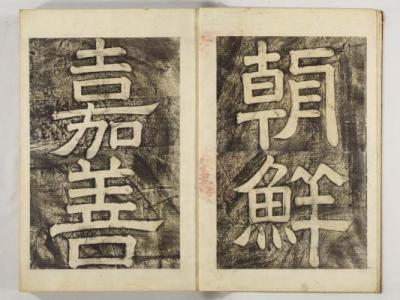 朝鮮
嘉善